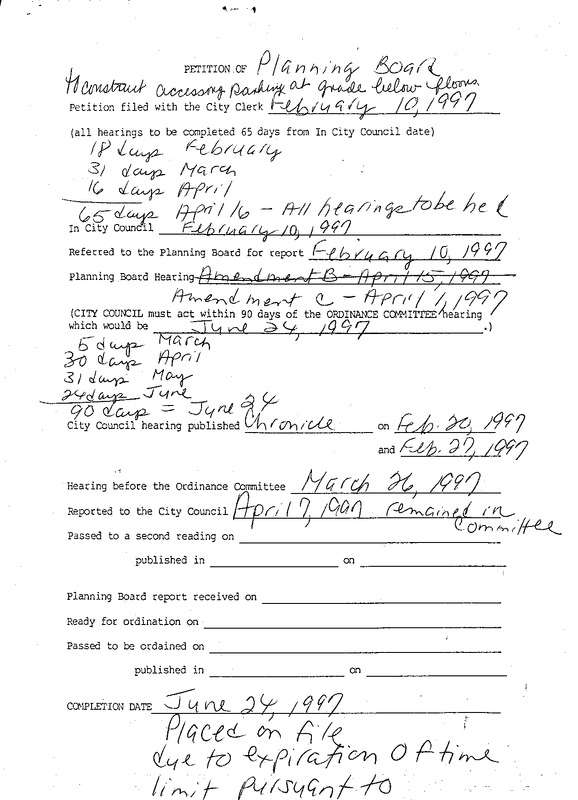 PETITION OF Planning Board
to construct accessory parking at grade below floors
Petition filed with the City Clerk February 10, 1997
(all hearings to be completed 65 days from In City Council date)
18 days February
31 days March
16 days April
65 days April 16 - All hearings to be held
In City Council February 10, 1997
Referred to the Planning Board for report February 10, 1997
Planning Board Hearing Amendment B - April 15, 1997
Amendment C - April 1, 1997
(CITY COUNCIL must act within 90 days of the ORDINANCE COMMITTEE hearing
which would be June 24, 1997 .)
5 days March
30 days April
31 days May
24 days June
90 days = June 24
City Council hearing published Chronicle on Feb. 20, 1997
and Feb. 27, 1997
Hearing before the Ordinance Committee March 26, 1997
Reported to the City Council April 7, 1997 remained in
Committee
Passed to a second reading on
published in on
Planning Board report received on
Ready for ordination on
Passed to be ordained on
published in on
COMPLETION DATE June 24, 1997
Placed on file
due to expiration of time
limit pursuant to